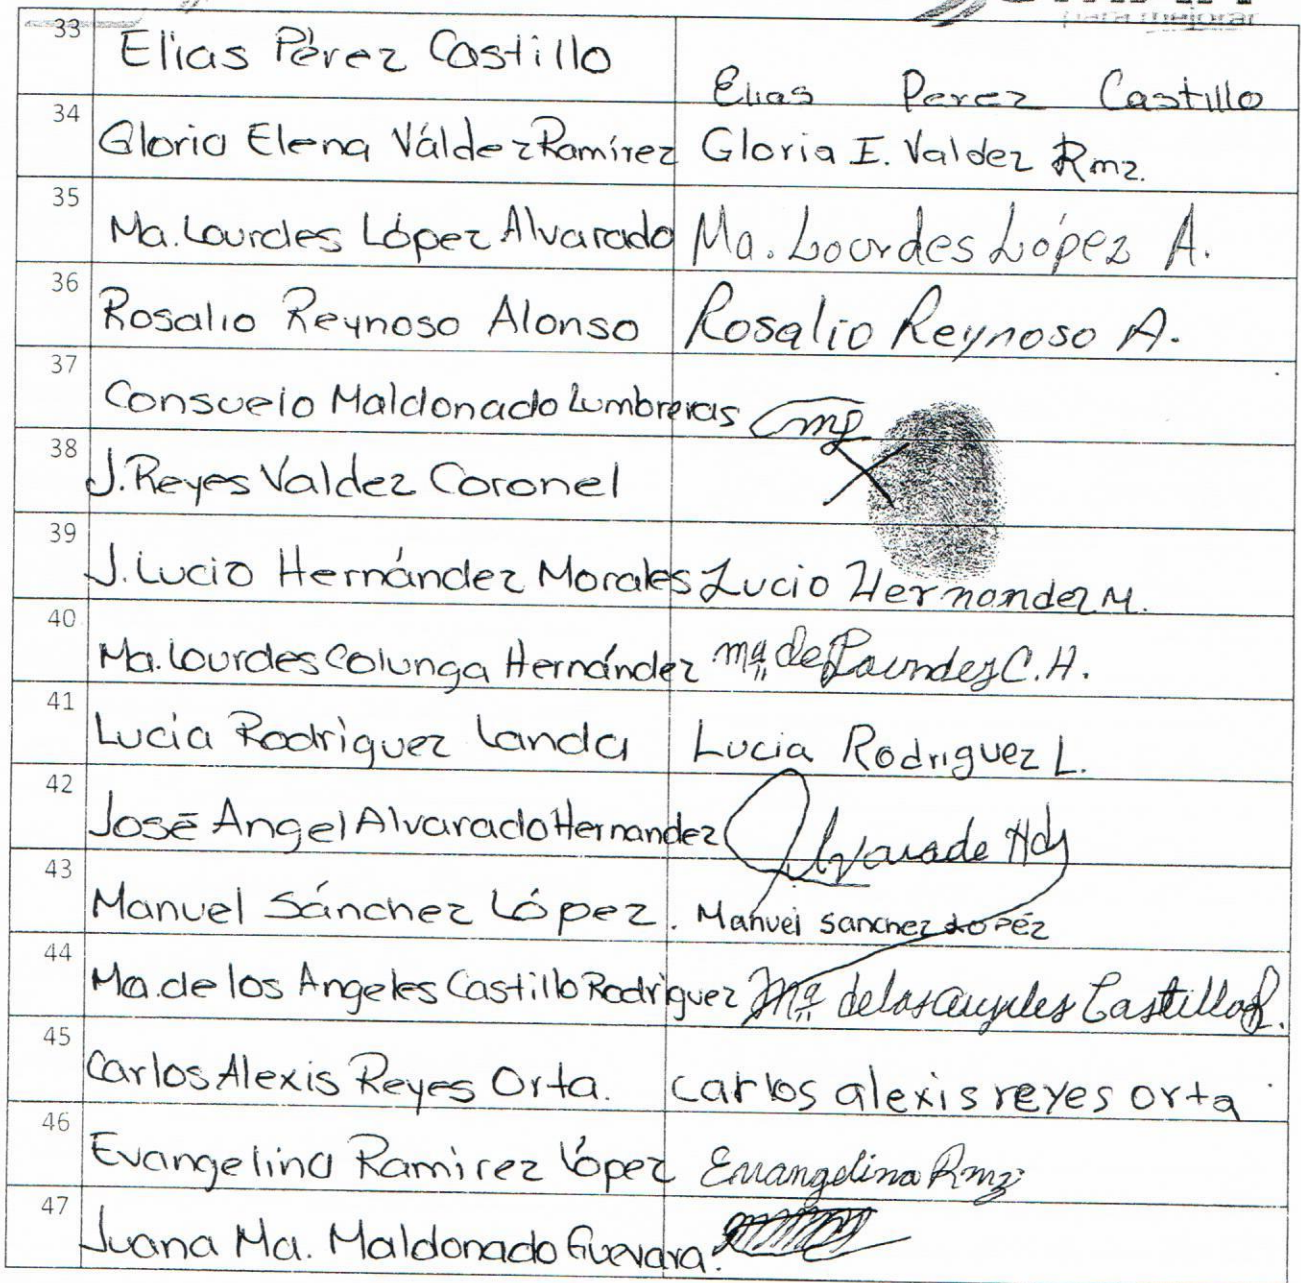 33 Elias Pérez Castillo Elias Perez Castillo
34 Gloria Elena Váldez Ramírez Gloria E. Valdez Rmz.
35 Ma. Lourdes López Alvarado Ma. Lourdes López A.
36 Rosalio Reynoso Alonso Rosalio Reynoso A.
37 Consuelo Maldonado Lumbreras
38 J. Reyes Valdez Coronel X
39 J. Lucio Hernández Morales Lucio Hernandez M.
40 Ma. Lourdes Colunga Hernández Ma de Lourdes C. H.
41 Lucia Rodriguez Landa Lucia Rodriguez L.
42 José Angel Alvarado Hernandez Alvarado Hdz
43 Manuel Sánchez López. Manuel Sanchez Lopéz
44 Ma. de los Angeles Castillo Rodriguez Ma de los angeles Castillo R.
45 Carlos Alexis Reyes Orta. carlos alexis reyes orta
46 Evangelina Ramirez López Evangelina Rmz
47 Juana Ma. Maldonado Guevara.